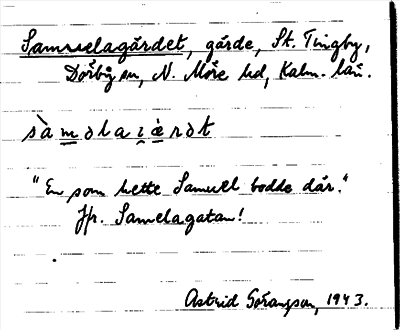 Samuelagärdet, gärde, St. Tingby,
Dörby sn, N. Möre hd, Kalm. län.
sàməlaiæ̀rət
"En som hette Samuel bodde där."
Jfr. Samelagatan!
Astrid Göransson, 1943.